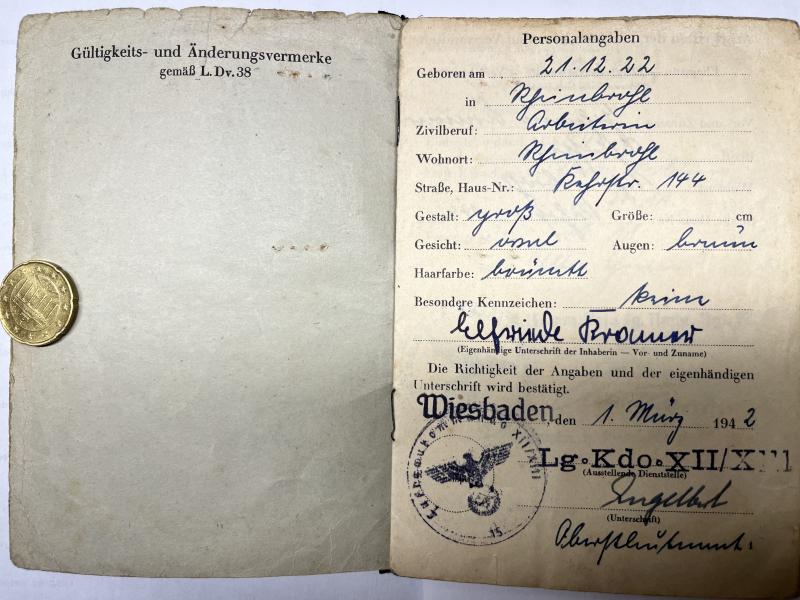 Gültigkeits- und Änderungsvermerke
gemäß L. Dv. 38
Personalangaben
Geboren am 21.12.22
in Rheinbrohl
Zivilberuf: Arbeiterin
Wohnort: Rheinbrohl
Straße, Haus-Nr.: Kehrstr. 144
Gestalt: groß Größe: cm
Gesicht: oval Augen: braun
Haarfarbe:
Besondere Kennzeichen: keine
Elfriede Kramer
(Eigenhändige Unterschrift der Inhaberin — Vor- und Zuname)
Die Richtigkeit der Angaben und der eigenhändigen
Unterschrift wird bestätigt.
Wiesbaden, den 1. März 1942
Luftgaukommando XII/XIII
15
Lg.Kdo.XII/XIII
(Ausstellende Dienststelle)
Engelbert
(Unterschrift)
Oberstleutnant